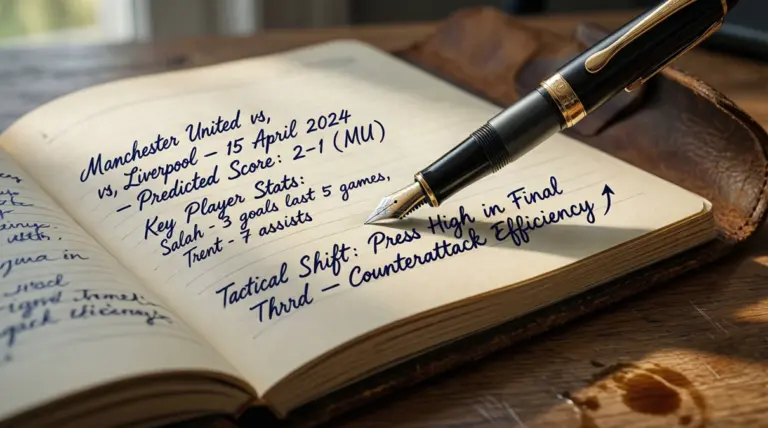 Manchester United vs,
vs, Liverpool – 15 April 2024
– Predicted Score: 2–1 (MU)
Key Player Stats:
Salah - 3 goals last 5 games,
Trent - 7 assists
Tactical Shift: Press High in Final
Thrrd – Counterattack Efficiency ↑